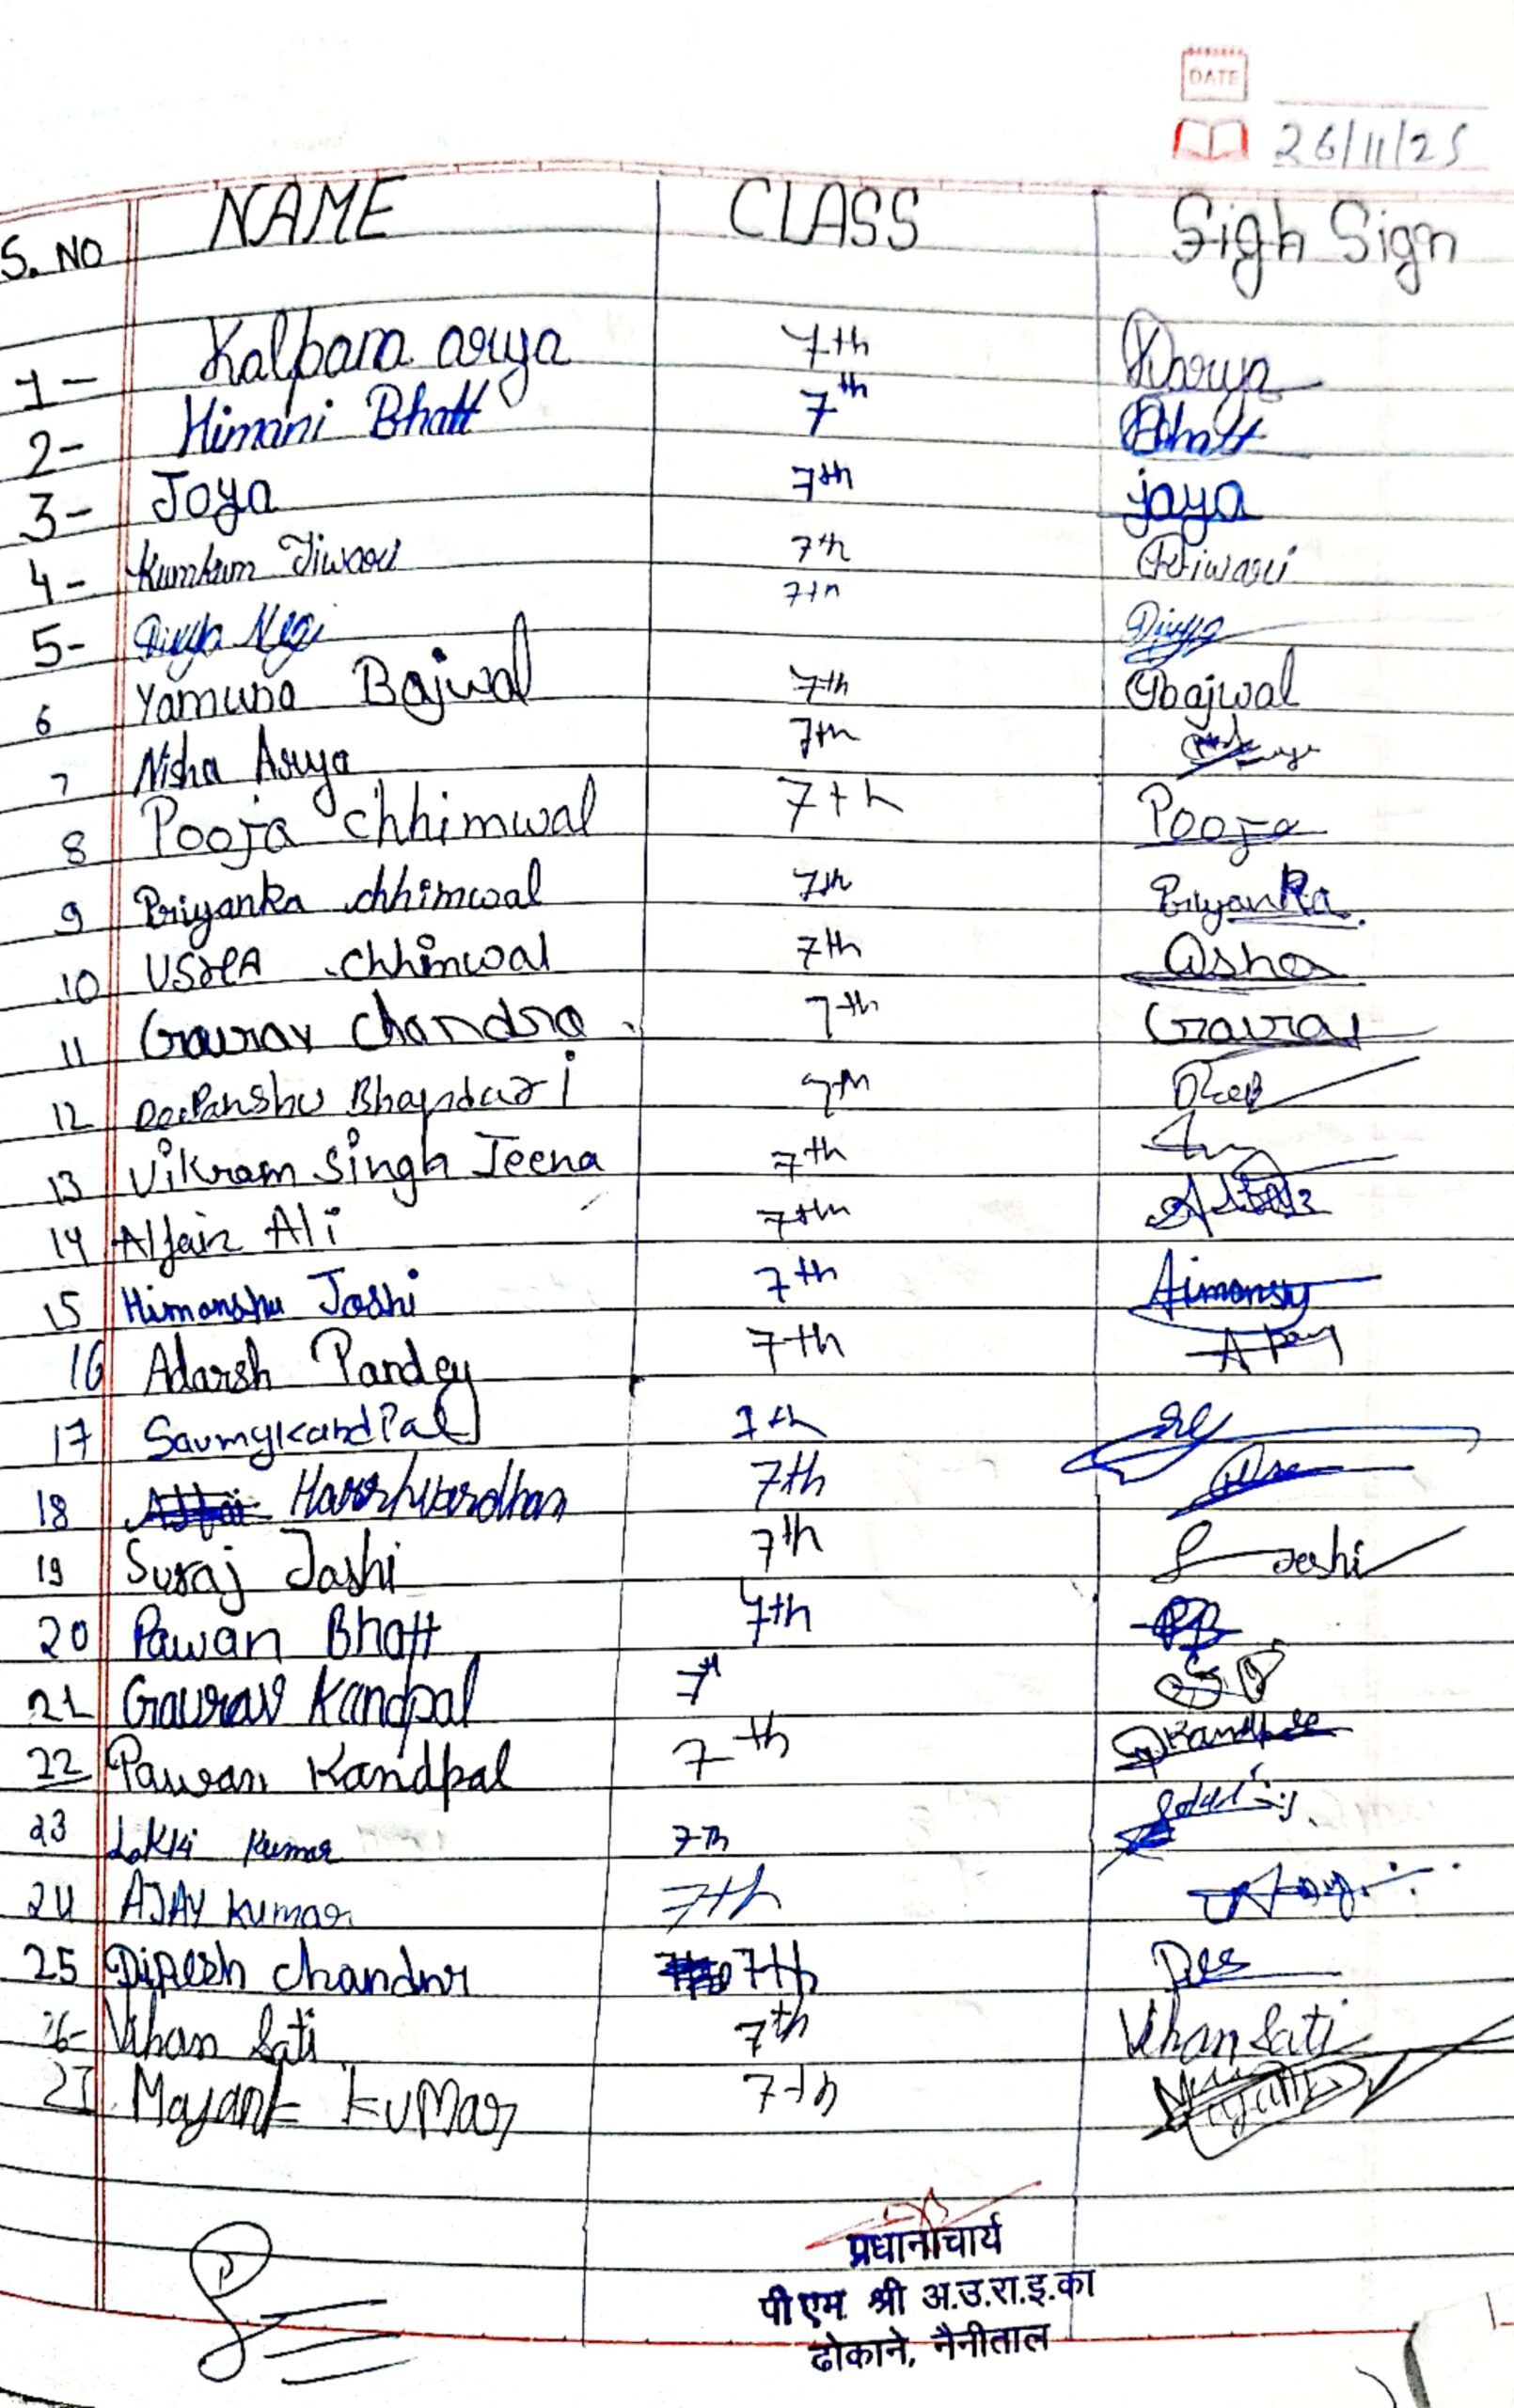 DATE
26/11/25
S. NO NAME CLASS Sigh Sign
1- Kalpana arya 7th Karya
2- Himani Bhatt 7th Bhatt
3- Joya 7th jaya
4- Kumkum Tiwari 7th Tiwari
5- Divya Negi 7th Divya
6 Yamuna Bajwal 7th Ybajwal
7 Nisha Arya 7th
8 Pooja chhimwal 7th Pooja
9 Priyanka chhimwal 7th Priyanka
10 USHA chhimwal 7th Usha
11 Gaurav Chandra 7th Gaurav
12 Deepanshu Bhandari 7th Deep
13 Vikram Singh Jeena 7th
14 Alfaiz Ali 7th
15 Himanshu Joshi 7th
16 Adarsh Pandey 7th
17 Saumykandpal 7th
18 Harshwardhan 7th
19 Suraj Joshi 7th S Joshi
20 Pawan Bhatt 7th PB
21 Gaurav Kandpal 7th
22 Pawan Kandpal 7th
23 Lakki Kumar 7th
24 AJAY Kumar 7th
25 Dipesh Chandra 7th
26- Vihan Sati 7th Vihan Sati
27 Mayank Kumar 7th
प्रधानाचार्य
पी एम श्री अ.उ.रा.इ.का
ढोकाने, नैनीताल